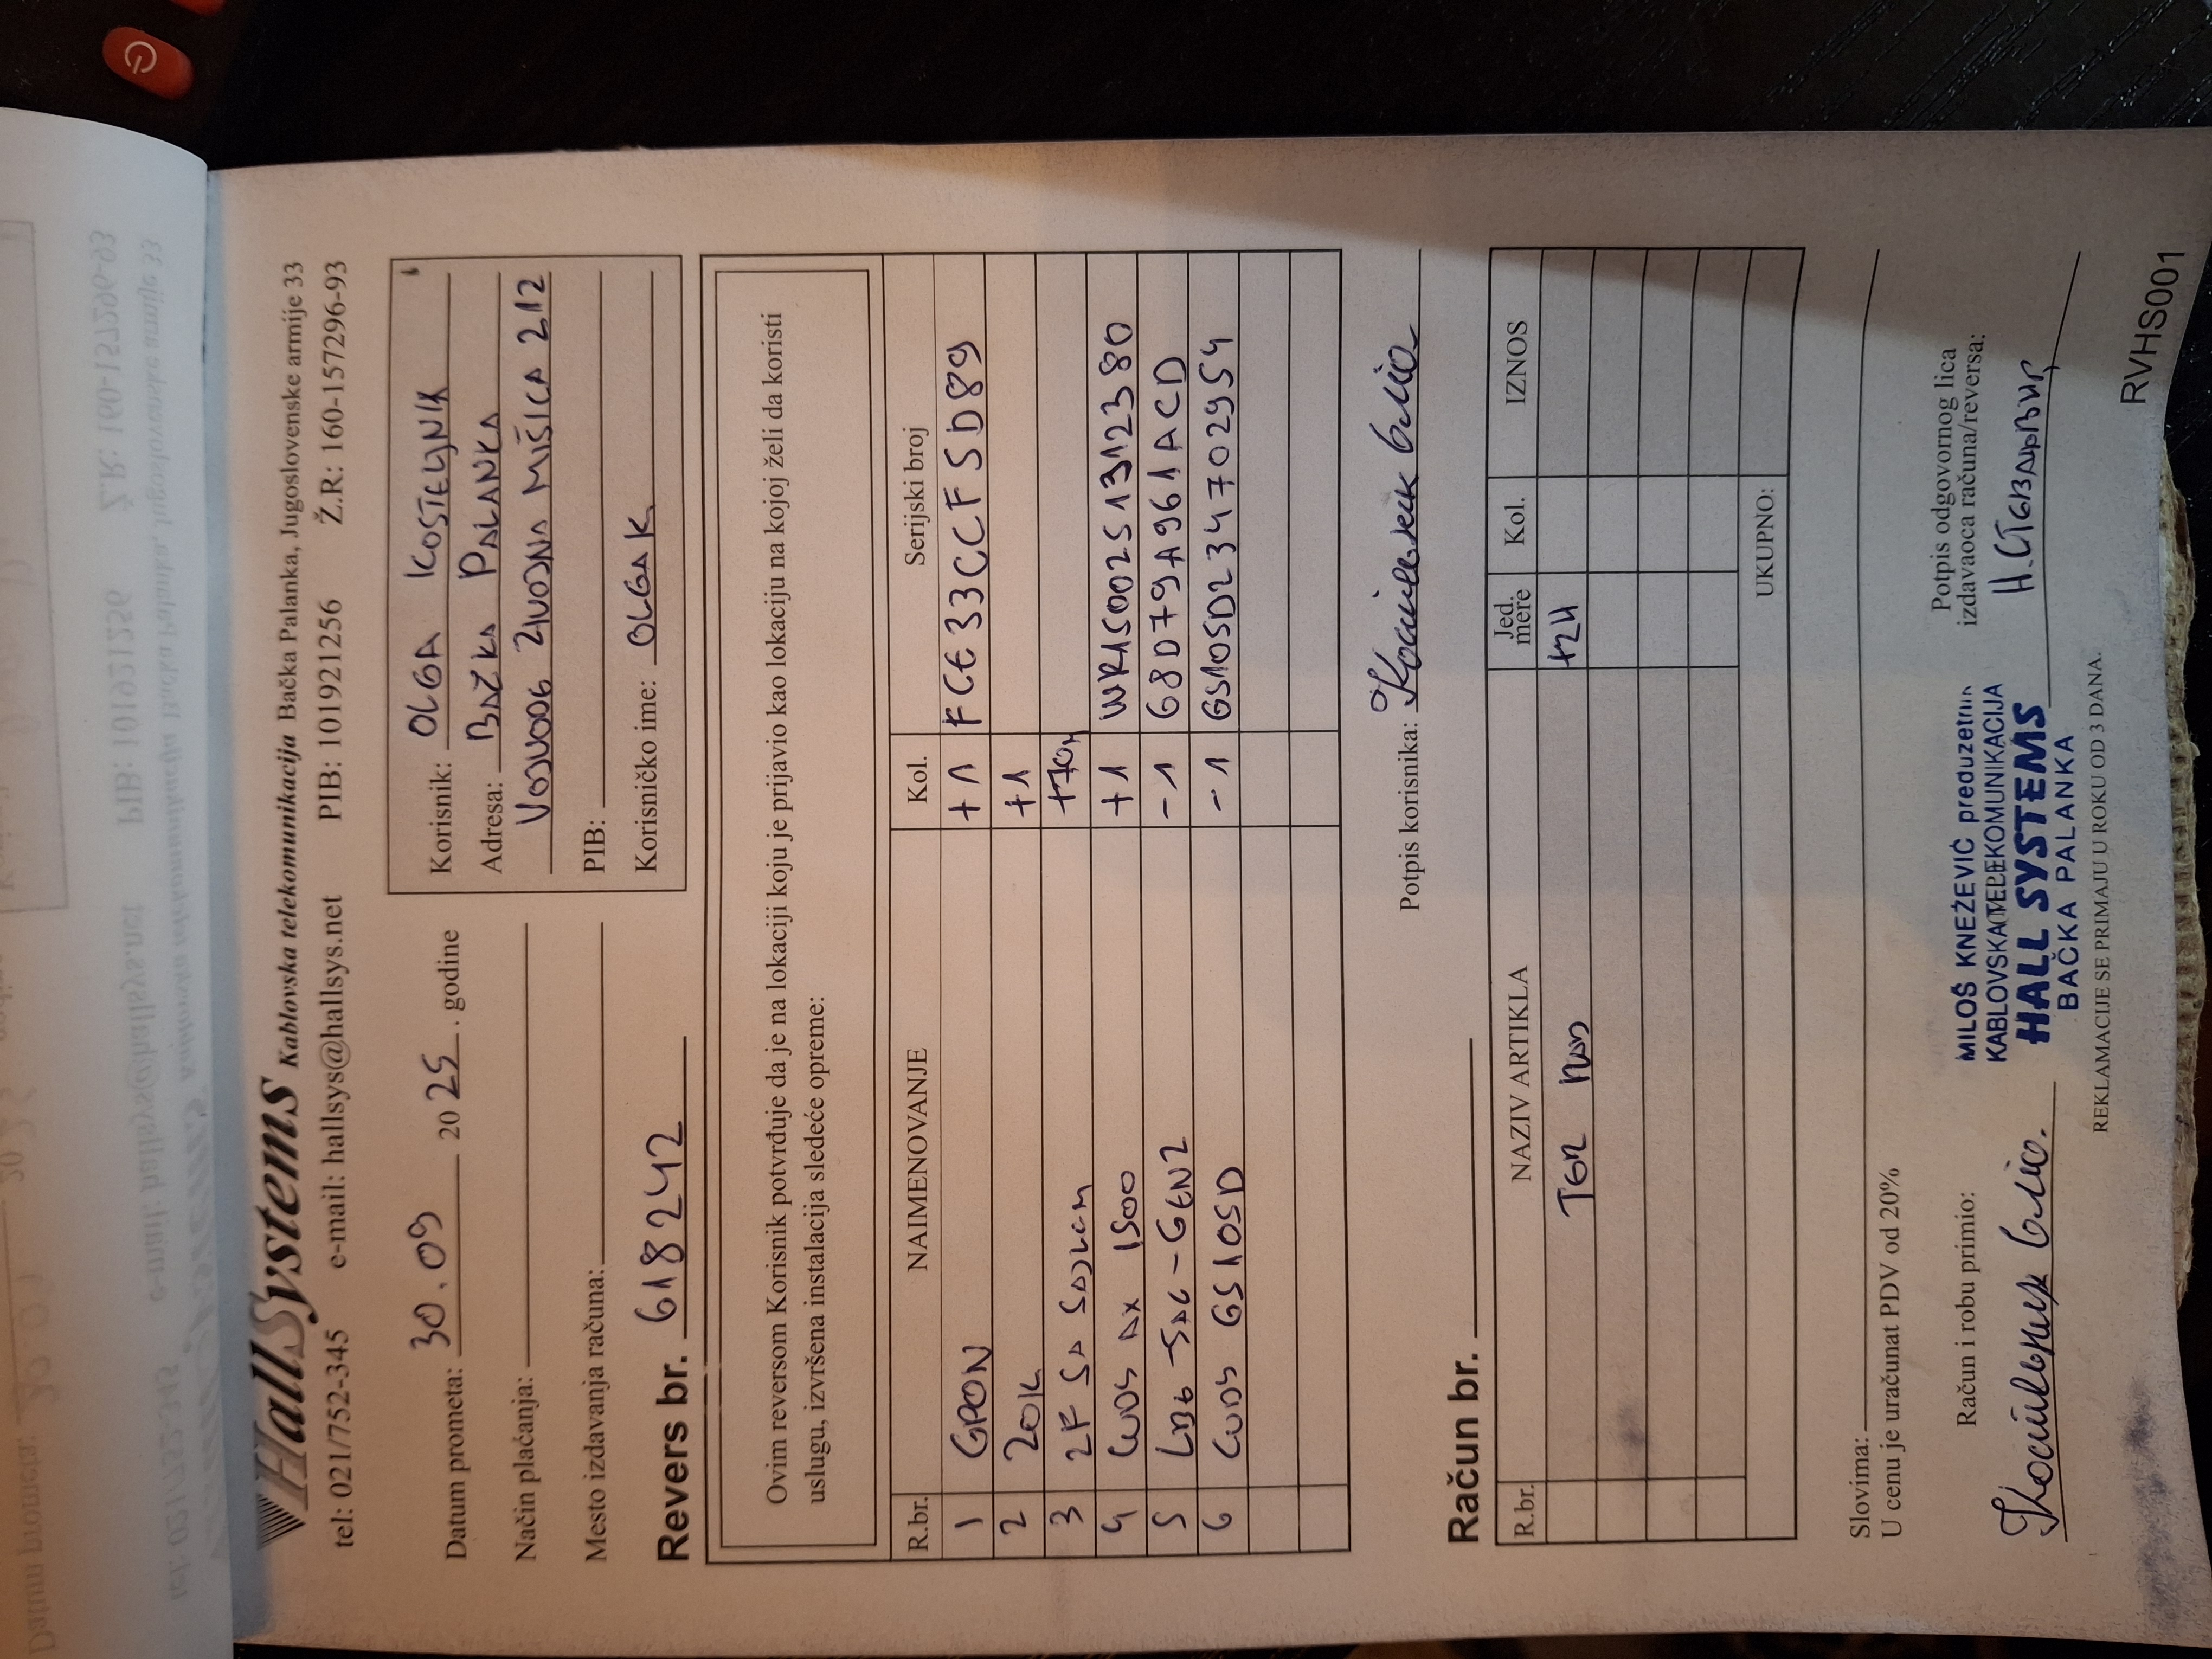 HallSystems Kablovska telekomunikacija Bačka Palanka, Jugoslovenske armije 33
tel: 021/752-345 e-mail: hallsys@hallsys.net PIB: 101921256 Ž.R: 160-157296-93
Datum prometa: 30.09 2025. godine
Način plaćanja:
Mesto izdavanja računa:
Korisnik: OLGA KOSTELJNIK
Adresa: BAČKA PALANKA
VOJVODE ŽIVOJINA MIŠIĆA 212
PIB:
Korisničko ime: OLGAK
Revers br. 618242
Ovim reversom Korisnik potvrđuje da je na lokaciji koju je prijavio kao lokaciju na kojoj želi da koristi
uslugu, izvršena instalacija sledeće opreme:
R.br. NAIMENOVANJE Kol. Serijski broj
1 GPON +1 FCE33CCF5D89
2 ZOIK +1
3 2F SA SAJLOM +70m
4 AX 1500 +1 WR1500251312380
5 LBE-5AC-GEN2 -1 68D79A961ACD
6 GS105D -1 GS105D234702954
Potpis korisnika:
Račun br.
R.br. NAZIV ARTIKLA Jed. mere Kol. IZNOS
+24
UKUPNO:
Slovima:
U cenu je uračunat PDV od 20%
Račun i robu primio:
MILOŠ KNEŽEVIĆ preduzetnik
KABLOVSKA TELEKOMUNIKACIJA
HALL SYSTEMS
BAČKA PALANKA
Potpis odgovornog lica
izdavaoca računa/reversa:
REKLAMACIJE SE PRIMAJU U ROKU OD 3 DANA.
RVHS001